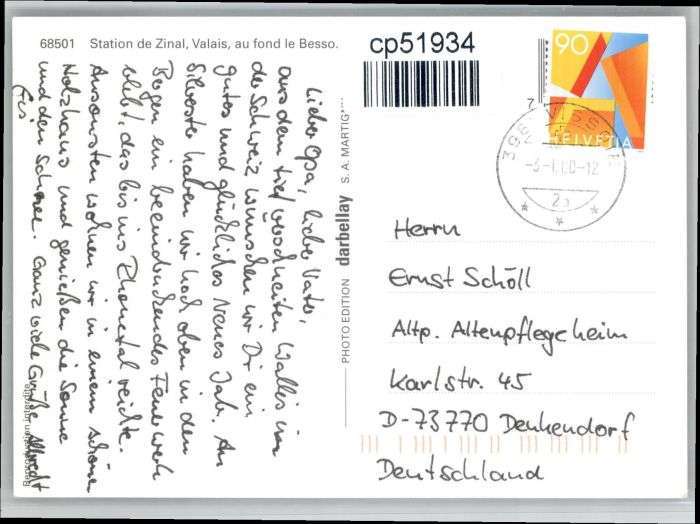 68501 Station de Zinal, Valais, au fond le Besso.
cp51934
90
HELVETIA
-3-1.00-12
Lieber Opa, lieber Vater,
aus dem tief verschneiten Wallis in
der Schweiz wünschen wir Dir ein
gutes und glückliches neues Jahr. An
Silvester haben wir hoch oben in den
Bergen ein beeindruckendes Feuerwerk
erlebt, das bis ins Rhonetal reichte.
Ansonsten wohnen wir in einem schönen
Holzhaus und genießen die Sonne
und den Schnee. Ganz viele Grüße Albrecht
PHOTO EDITION darbellay S. A. MARTIG
Herrn
Ernst Schöll
Altp. Altenpflegeheim
Karlstr. 45
D-73770 Denkendorf
Deutschland